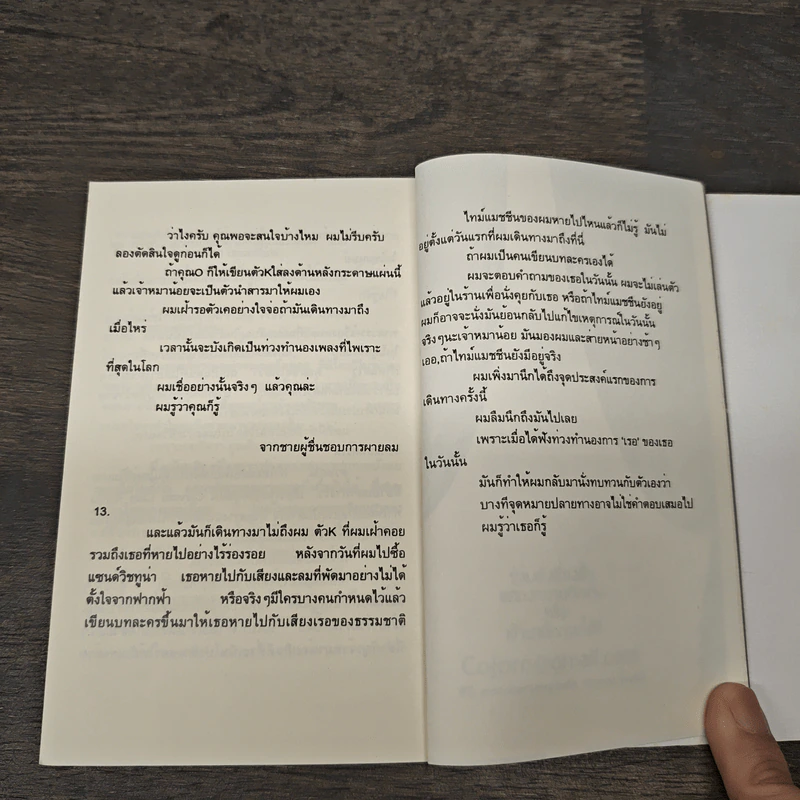 ว่าไงครับ คุณพอจะสนใจบ้างไหม ผมไม่รีบครับ
ลองตัดสินใจดูก่อนก็ได้
ถ้าคุณO ก็ให้เขียนตัวKใส่ลงด้านหลังกระดาษแผ่นนี้
แล้วเจ้าหมาน้อยจะเป็นตัวนำสารมาให้ผมเอง
ผมเฝ้ารอตัวเคอย่างใจจ่อถ้ามันเดินทางมาถึง
เมื่อไหร่
เวลานั้นจะบังเกิดเป็นท่วงทำนองเพลงที่ไพเราะ
ที่สุดในโลก
ผมเชื่ออย่างนั้นจริงๆ แล้วคุณล่ะ
ผมรู้ว่าคุณก็รู้
จากชายผู้ชื่นชอบการผายลม
13.
และแล้วมันก็เดินทางมาไม่ถึงผม ตัวK ที่ผมเฝ้าคอย
รวมถึงเธอที่หายไปอย่างไร้ร่องรอย หลังจากวันที่ผมไปซื้อ
แซนด์วิชทูน่า เธอหายไปกับเสียงและลมที่พัดมาอย่างไม่ได้
ตั้งใจจากฟากฟ้า หรือจริงๆมีใครบางคนกำหนดไว้แล้ว
เขียนบทละครขึ้นมาให้เธอหายไปกับเสียงเรอของธรรมชาติ
ไทม์แมชชีนของผมหายไปไหนแล้วก็ไม่รู้ มันไม่
อยู่ตั้งแต่วันแรกที่ผมเดินทางมาถึงที่นี่
ถ้าผมเป็นคนเขียนบทละครเองได้
ผมจะตอบคำถามของเธอในวันนั้น ผมจะไม่เล่นตัว
แล้วอยู่ในร้านเพื่อนั่งคุยกับเธอ หรือถ้าไทม์แมชชีนยังอยู่
ผมก็อาจจะนั่งมันย้อนกลับไปแก้ไขเหตุการณ์ในวันนั้น
จริงๆนะเจ้าหมาน้อย มันมองผมและส่ายหน้าอย่างช้าๆ
เออ,ถ้าไทม์แมชชีนยังมีอยู่จริง
ผมเพิ่งมานึกได้ถึงจุดประสงค์แรกของการ
เดินทางครั้งนี้
ผมลืมนึกถึงมันไปเลย
เพราะเมื่อได้ฟังท่วงทำนองการ 'เรอ' ของเธอ
ในวันนั้น
มันก็ทำให้ผมกลับมานั่งทบทวนกับตัวเองว่า
บางทีจุดหมายปลายทางอาจไม่ใช่คำตอบเสมอไป
ผมรู้ว่าเธอก็รู้